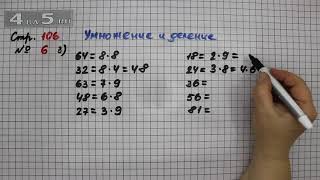 4на5.ru
Стр. 106 Умножение и деление
№ 6 г)
64 = 8 · 8
32 = 8 · 4 = 4·8
63 = 7 · 9
48 = 6 · 8
27 = 3 · 9
18 = 2 · 9 =
24 = 3 · 8 = 4·6
36 =
56 =
81 =